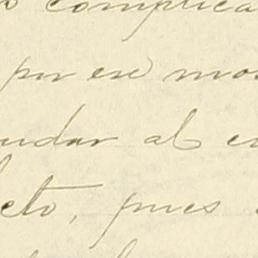 complica
por ese mo
udar al
cto, pues